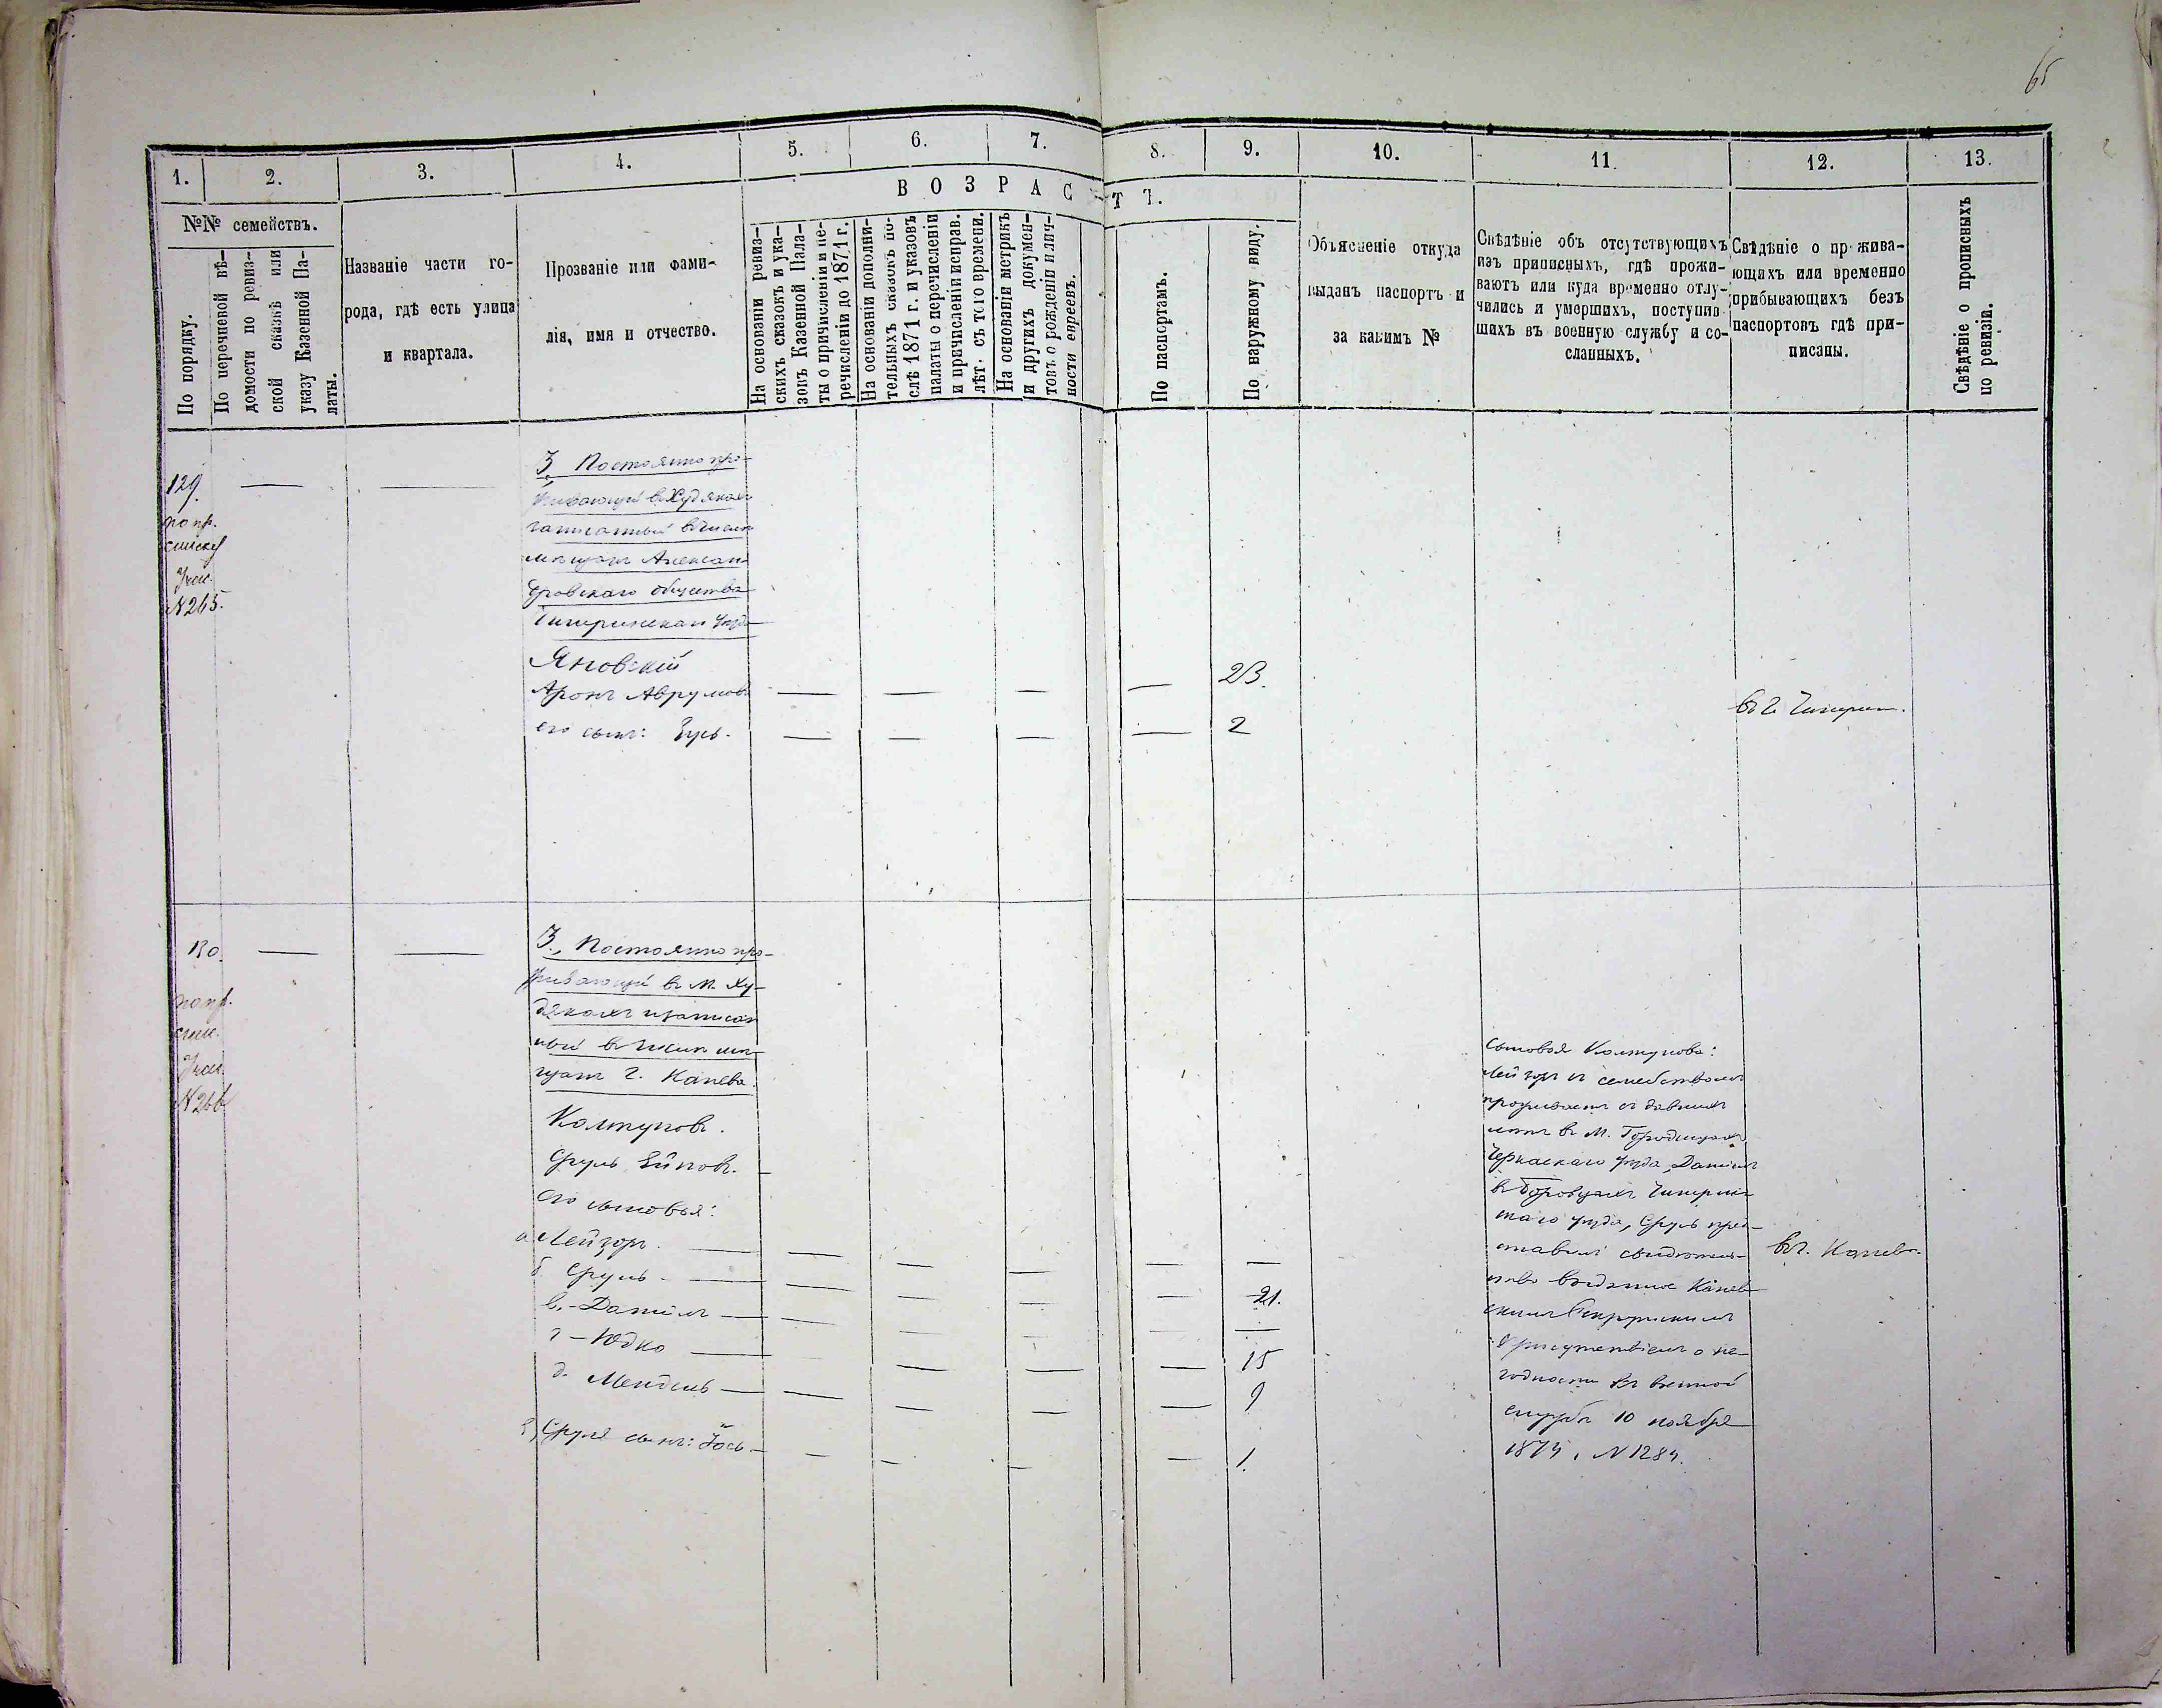 65
1. 2. 3. 4. 5. 6. 7. 8. 9. 10. 11. 12. 13.
ВОЗРАСТЪ.
№№ семействъ.
По порядку.
По перечневой вѣ-
домости по ревиз-
ской сказкѣ или
указу Казенной Па-
латы.
Названіе части го-
рода, гдѣ есть улица
и квартала.
Прозваніе или фами-
лія, имя и отчество.
На основаніи ревиз-
скихъ сказокъ и ука-
зовъ Казенной Пала-
ты о причисленіи и пе-
речисленіи до 1871 г.
На основаніи дополни-
тельныхъ сказокъ по-
слѣ 1871 г. и указовъ
палаты о перечисленіи
и причисленіи исправ.
лѣт. съ того времени.
На основаніи метрикъ
и другихъ докумен-
товъ о рожденіи и лич-
ности евреевъ.
По паспортамъ.
По наружному виду.
Объясненіе откуда
выданъ паспортъ и
за какимъ №
Свѣдѣніе объ отсутствующихъ
изъ приписныхъ, гдѣ прожи-
ваютъ или куда временно отлу-
чились и умершихъ, поступив
шихъ въ военную службу и со-
сланныхъ.
Свѣдѣніе о прожива-
ющихъ или временно
прибывающихъ безъ
паспортовъ гдѣ при-
писаны.
Свѣдѣніе о прописныхъ
по ревизіи.
129.
по пр.
списку
№265.
3. Постоянно про-
живающій въ Худякахъ
записанный въ числѣ
мѣщанъ Алексан-
дровскаго общества
Чигиринскаго уѣзда
Яновскій
Аронъ Аврумовъ — — — — 23.
его сынъ: Зусь. — — — — 2
въ г. Чигиринѣ.
130.
по пр.
спис.
№266
3., Постоянно про-
живающій въ м. Ху-
дякахъ и записан
ный въ числѣ мѣ-
щанъ г. Канева.
Колтуновъ.
Сруль
его сыновья:
а Лейзоръ. — — — — — —
б Сруль. — — — — — 21.
в. - Даніилъ — — — — — —
г - Юдко — — — — 15
д. Мендель — — — — — 9
е) Сруля сынъ: Іось — — — — — 1.
сыновья Колтунова:
Лейзоръ съ семействомъ
проживаетъ съ давнихъ
лѣтъ въ м. Городищахъ
Черкаскаго уѣзда, Даніилъ
въ Боровицахъ Чигирин-
скаго уѣзда, Сруль пред-
ставилъ свидѣтель-
ство выданное Канев-
скимъ
Присутствіемъ о не-
годности къ военной
службѣ 10 ноября
1874, №1284.
въ г. Каневѣ.